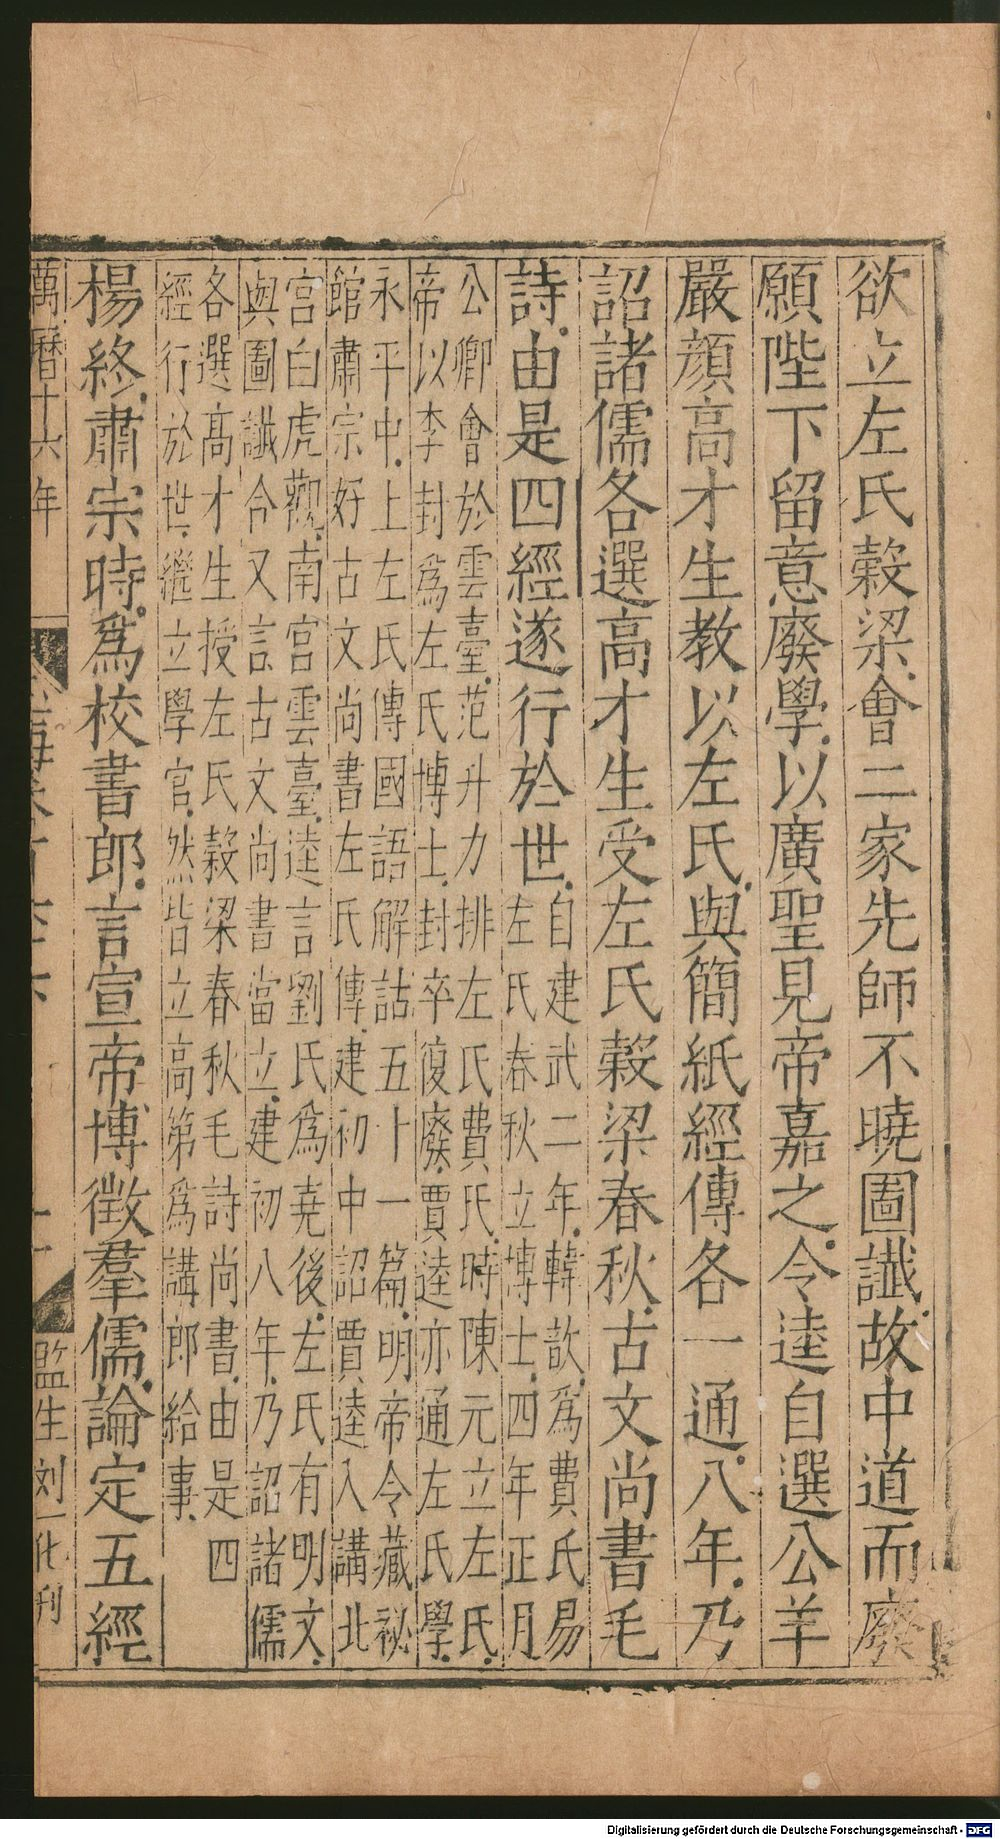 欲立左氏榖梁會二家先師不曉圖讖故中道而廢
願陛下留意廢學以廣聖見帝嘉之令逵自選公羊
嚴顏高才生教以左氏與簡紙經傳各一通八年乃
詔諸儒各選高才生受左氏榖梁春秋古文尚書毛
詩由是四經遂行於世
自建武二年韓歆為費氏易
左氏春秋立博士四年正月
公卿會於雲臺范升力排左氏費氏時陳元立左氏
帝以李封為左氏博士封卒復廢賈逵亦通左氏學
永平中上左氏傳國語解詁五十一篇明帝令藏祕
館肅宗好古文尚書左氏傳建初中詔賈逵入講北
宮白虎觀南宮雲臺逵言劉氏為堯後左氏有明文
與圖讖合又言古文尚書當立建初八年乃詔諸儒
各選高才生授左氏榖梁春秋毛詩尚書由是四
經行於世繼立學官然皆立高第為講郎給事
楊終肅宗時為校書郎言宣帝博徵羣儒論定五經
萬曆十六年
監生刘一化刊
Digitalisierung gefördert durch die Deutsche Forschungsgemeinschaft - DFG